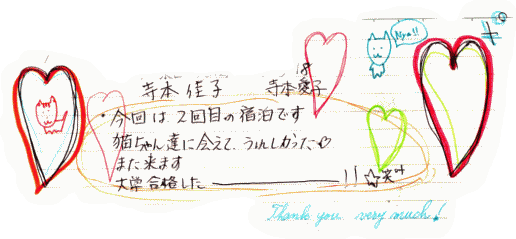 Nya!!
寺本 佳子 寺本 愛子
・今回は、2回目の宿泊です
猫ちゃん達に会えて、うれしかった♡
また来ます
大学合格した ―――― !! ☆笑叶
Thank you very much!